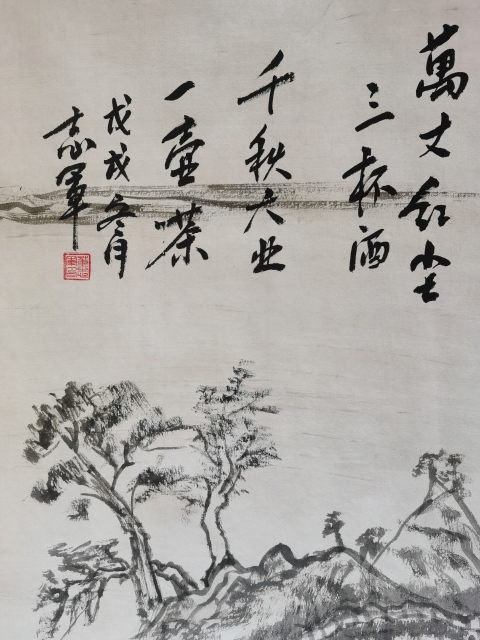 萬丈红尘
三杯酒
千秋大业
一壶嗏
戊戌冬月
志軍